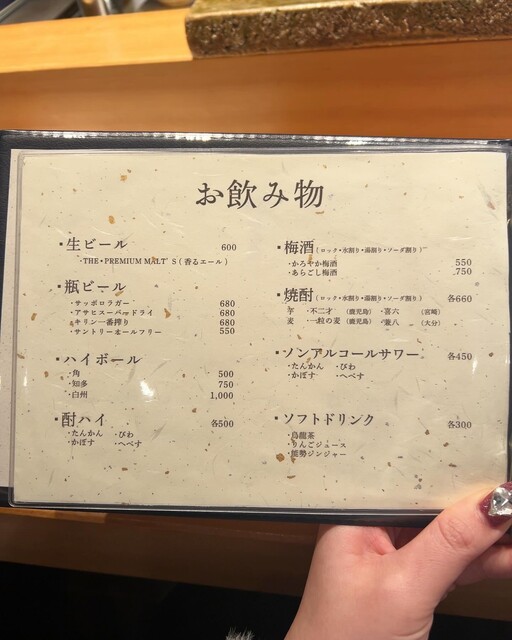 お飲み物
・生ビール 600
・THE・PREMIUM MALT'S(香るエール)
・瓶ビール
・サッポロラガー 680
・アサヒスーパードライ 680
・キリン一番搾り 680
・サントリーオールフリー 550
・ハイボール
・角 500
・知多 750
・白州 1,000
・酎ハイ 各500
・たんかん ・びわ
・かぼす ・へべす
・梅酒(ロック・水割り・湯割り・ソーダ割り)
・かろやか梅酒 550
・あらごし梅酒 750
・焼酎(ロック・水割り・湯割り・ソーダ割り) 各660
芋 ・不二才 (鹿児島) ・喜六 (宮崎)
麦 ・一粒の麦 (鹿児島) ・兼八 (大分)
・ノンアルコールサワー 各450
・たんかん ・びわ
・かぼす ・へべす
・ソフトドリンク 各300
・烏龍茶
・りんごジュース
・能勢ジンジャー